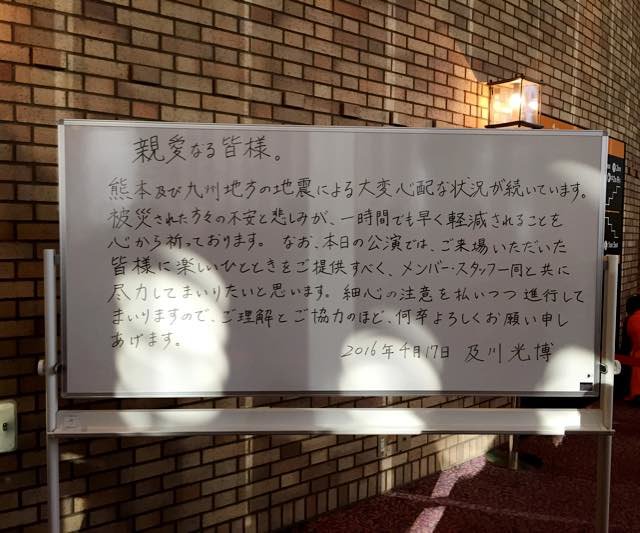 親愛なる皆様。
熊本及び九州地方の地震による大変心配な状況が続いています。
被災された方々の不安と悲しみが、一時間でも早く軽減されることを
心から祈っております。なお、本日の公演では、ご来場いただいた
皆様に楽しいひとときをご提供すべく、メンバー・スタッフ一同と共に
尽力してまいりたいと思います。細心の注意を払いつつ進行して
まいりますので、ご理解とご協力のほど、何卒よろしくお願い申し
あげます。
2016年4月17日 及川光博